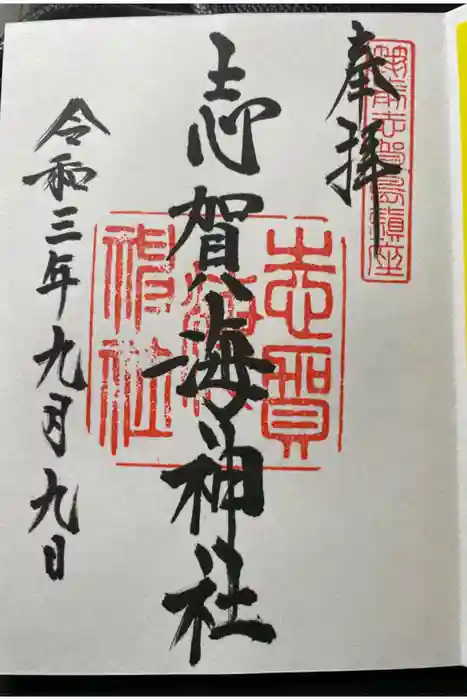 奉拝
筑前志賀島鎮座
志賀海神社
志賀
海
神社
令和三年九月九日